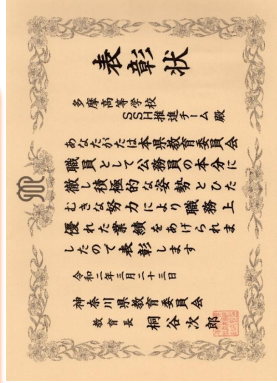 表彰状
多摩高等学校
SSH推進チーム 殿
あなたがたは本県教育委員会
職員として公務員の本分に
徹し積極的な姿勢とひた
むきな努力により職務上
優れた業績をあげられま
したので表彰します
令和二年三月二十三日
神奈川県教育委員会
教育長 桐谷次郎